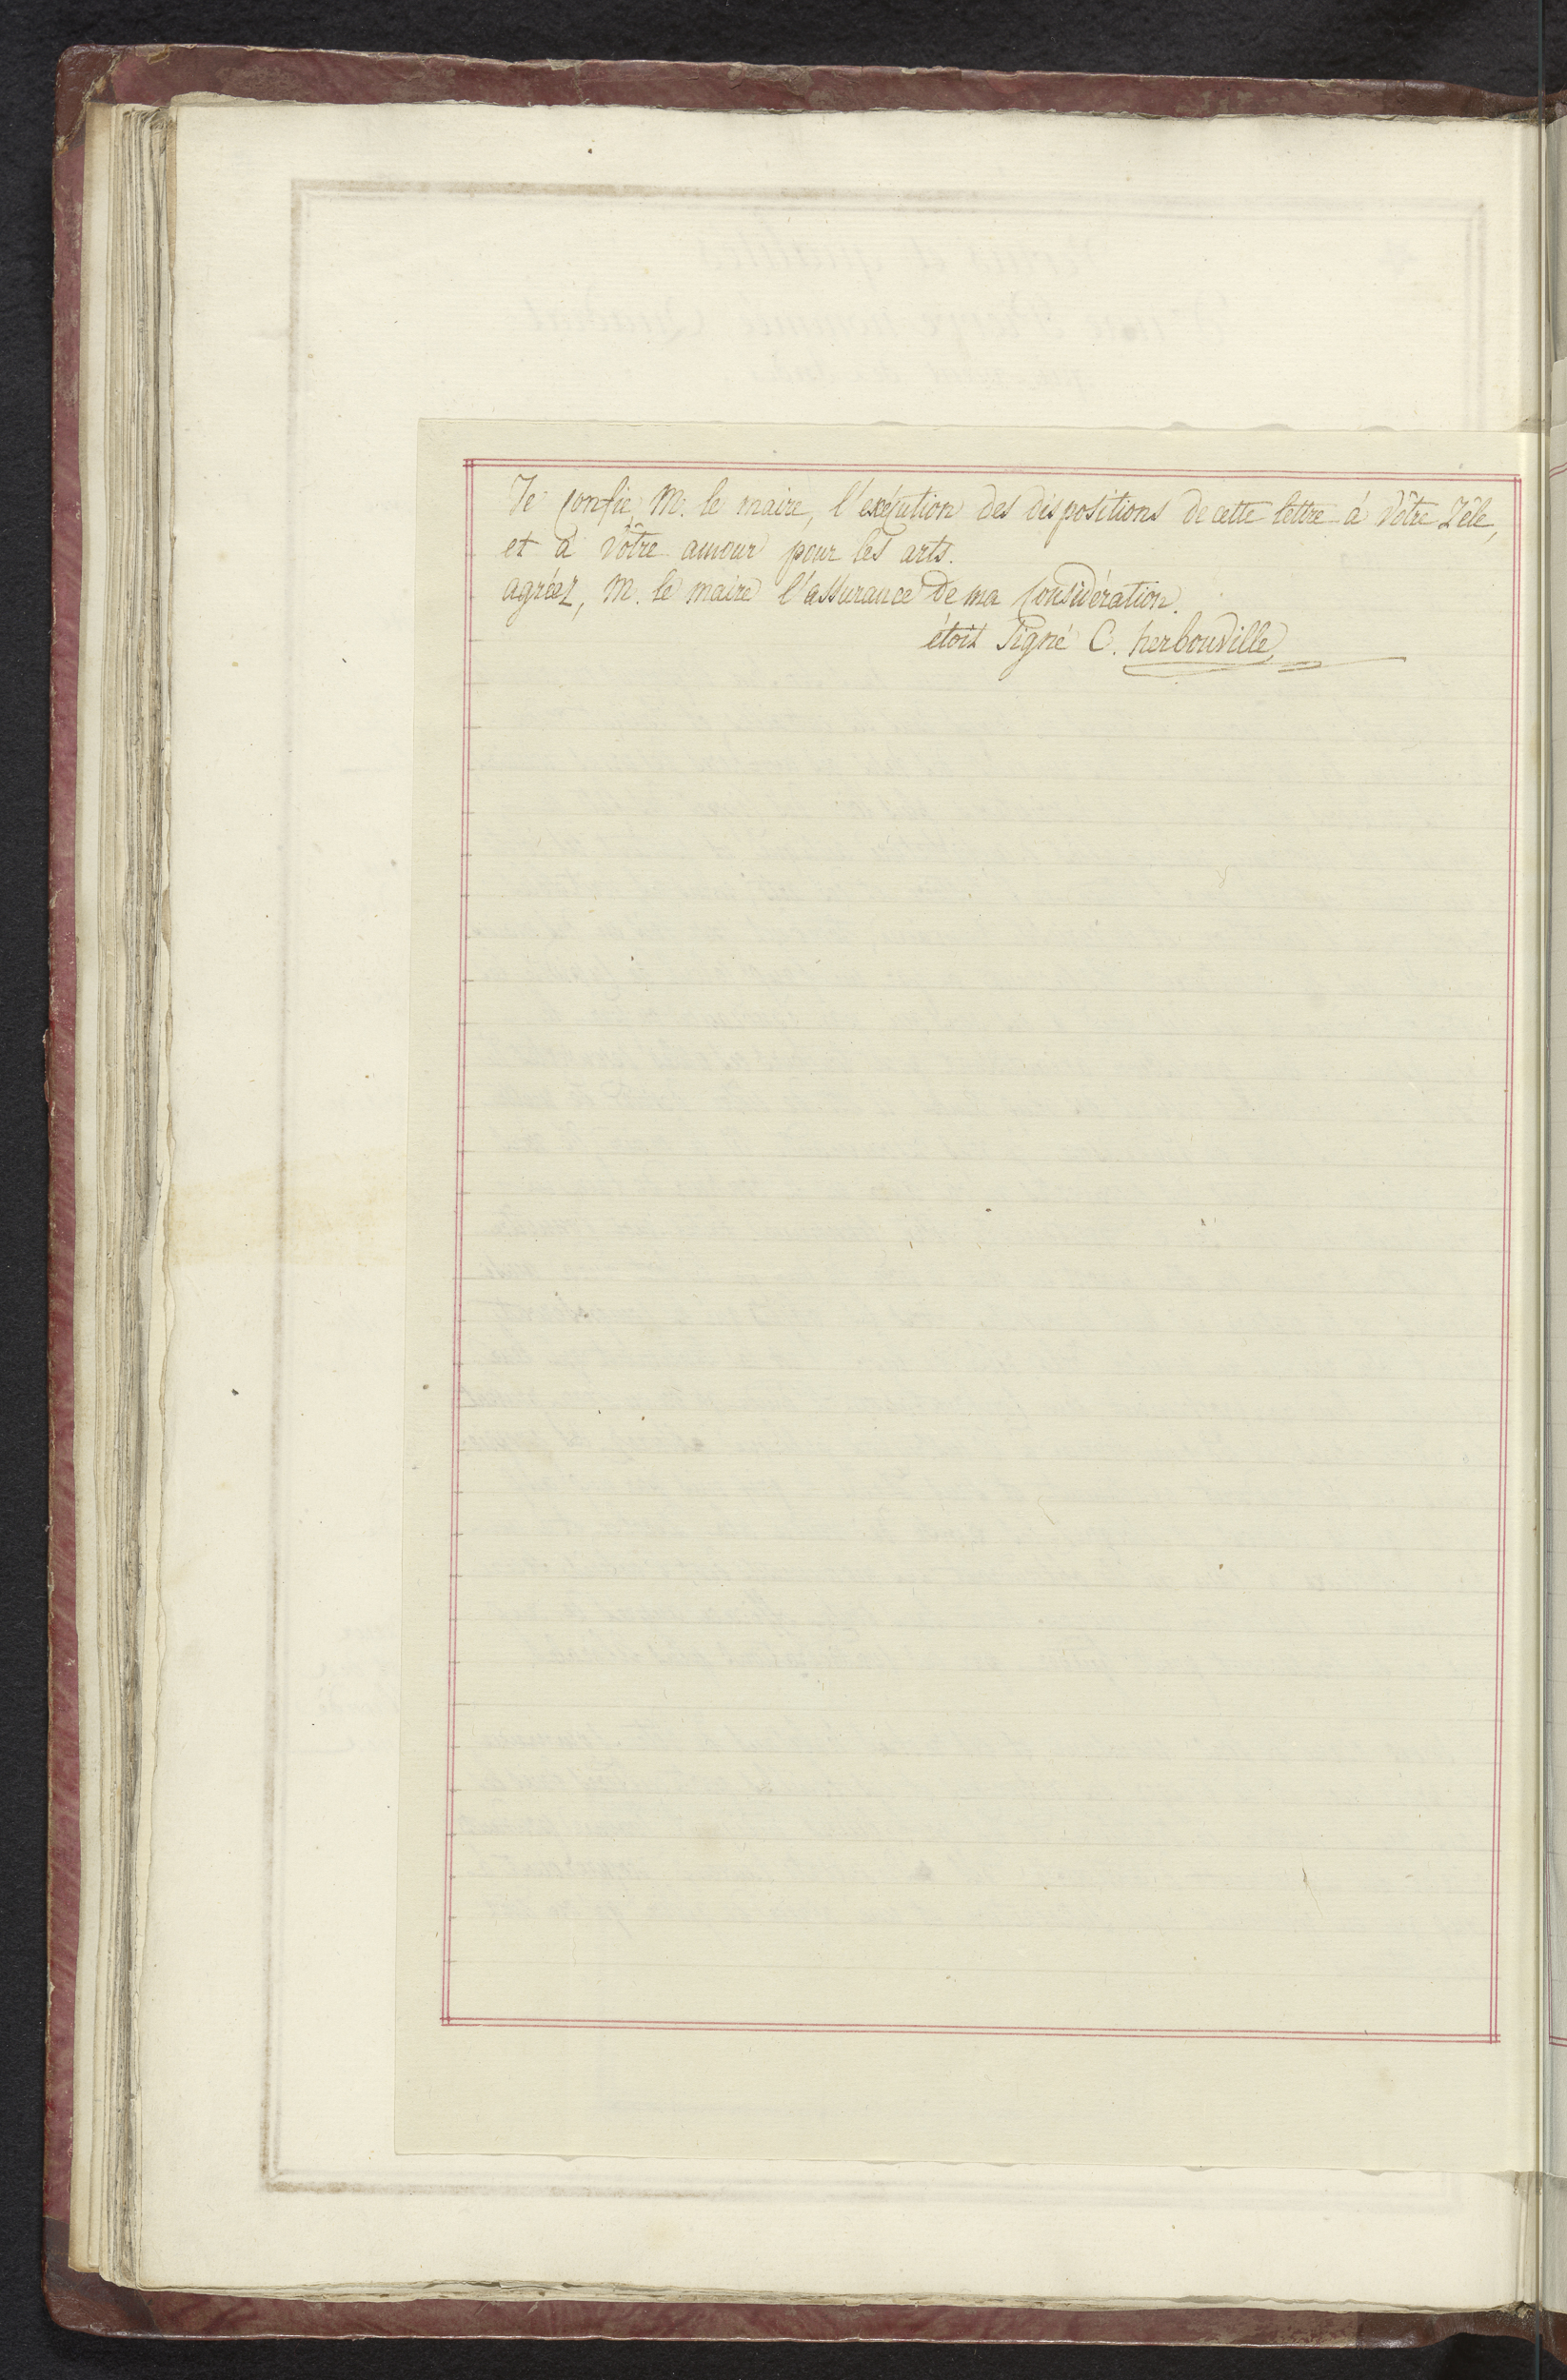 Je confie, M. le maire, l'exécution des dispositions de cette lettre à vôtre Zêle,
et à vôtre amour pour les arts.
agréez, M. le maire l'assurance de ma considération.
étoit signé C. herbouville